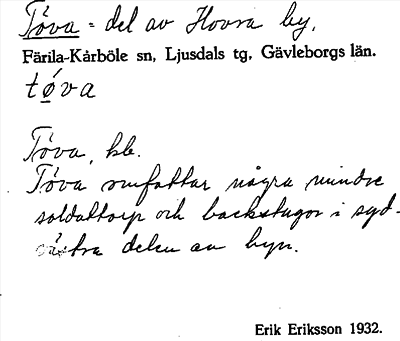 Töva = del av Hovra by,
Färila-Kårböle sn, Ljusdals tg, Gävleborgs län.
tø̀va
Töva, hb.
Töva omfattar några mindre
soldattorp och backstugor i syd-
östra delen av byn.
Erik Eriksson 1932.